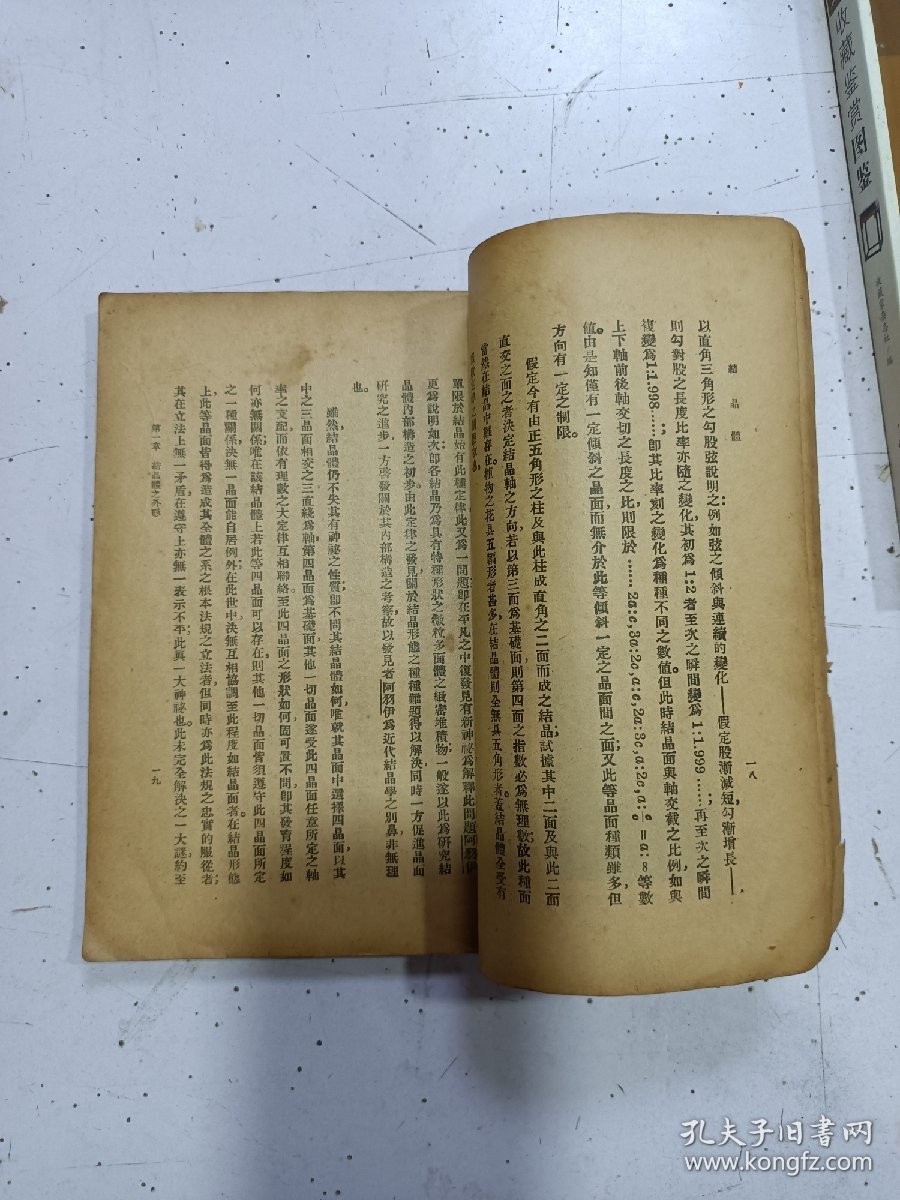 結晶體
一八
以直角三角形之勾股弦說明之例如弦之傾斜與連續的變化——假定股漸減短勾漸增長——,
則勾對股之長度比率亦隨之變化其初爲1:2者至次之瞬間變爲1:1.999……;再至次之瞬間
複變爲1:1.998……即其比率刻之變化爲種種不同之數值。但此時結晶面與軸交截之比例如與
上下軸前後軸交切之長度之比則限於……2a:c,3a:2c,a:c,2a:3c,a:2c,a:
等數
值。由是知僅有一定傾斜之晶面,而無介於此等傾斜一定之晶面間之面;又此等晶面種類雖多但
方向有一定之制限。
假定今有由正五角形之柱及與此柱成直角之二面而成之結晶,試據其中二面及與此二面
直交之面之者決定結晶軸之方向,若以第三面爲基礎面則第四面之指數必爲無理數;故此種面
當然在結晶中無存在。植物之花具五瓣形者甚多,在結晶體則全無具五角形者,蓋結晶體全受有
單限於結晶始有此種定律,此又爲一問題,即在平凡之中復發見有新神祕,爲解釋此問題,阿羽伊
更爲說明如次:即各結晶乃爲具有特種形狀之微粒多面體之緻密堆積物;一般遂以此爲研究結
晶體內部構造之初步。由此定律之發見,關於結晶形態之種種難題得以解決,同時一方促進晶面
研究之進步,一方啓發關於其內部構造之考察,故以發見者阿羽伊爲近代結晶學之別鼻非無理
也。
雖然結晶體仍不失其有神祕之性質,即不問其結晶體如何,唯就其晶面中選擇四晶面,以其
中之三晶面相交之三直綫爲軸,第四晶面爲基礎面,其他一切晶面遂受此四晶面任意所定之軸
率之支配,而依有理數之大定律互相聯絡,至此四晶面之形狀如何,固可置不問,即其發育程度如
何亦無關係。唯在該結晶體上若此等四晶面可以存在,則其他一切晶面皆須遵守此四晶面所定
之一種關係,決無一晶面能自居例外。在此世中決無互相協調至此程度如結晶面者。在結晶形態
上,此等晶面皆得爲造成其全體之系之根本法規之立法者,但同時亦爲此法規之忠實的服從者;
其在立法上無一矛盾,在遵守上亦無一表示不平;此眞一大神祕也。此未完全解決之一大謎,約至
第一章 結晶體之外形
一九
收藏鉴赏图鉴
孔夫子旧书网
www.kongfz.com